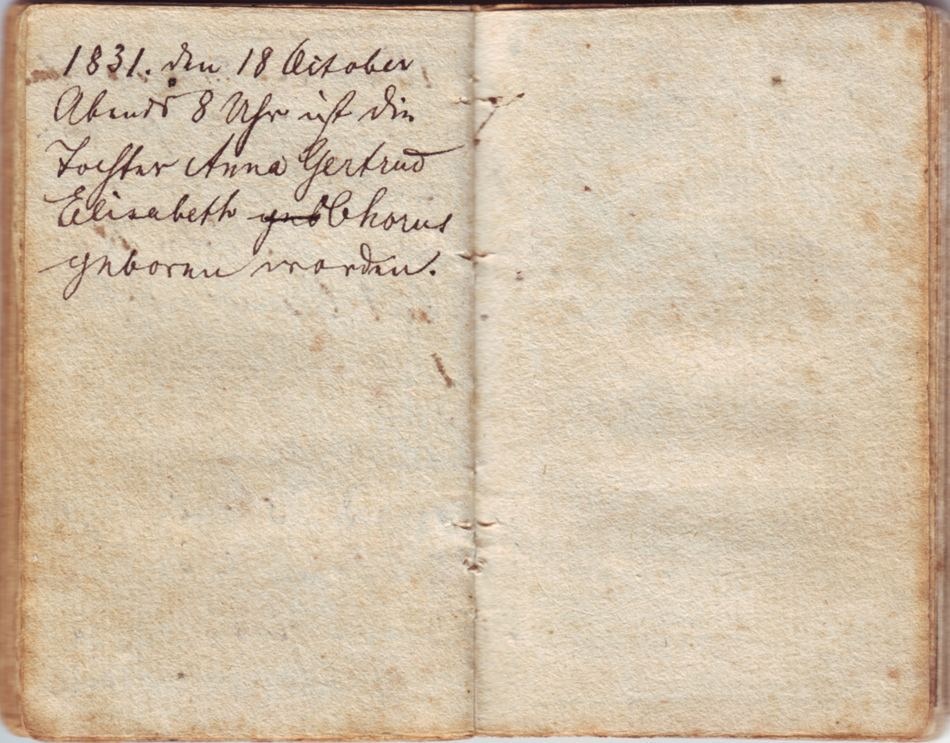 1831. den 18 October
Abends 8 Uhr ist die
Tochter Anna Gertrud
Elisabeth geb Chorus
geboren worden.